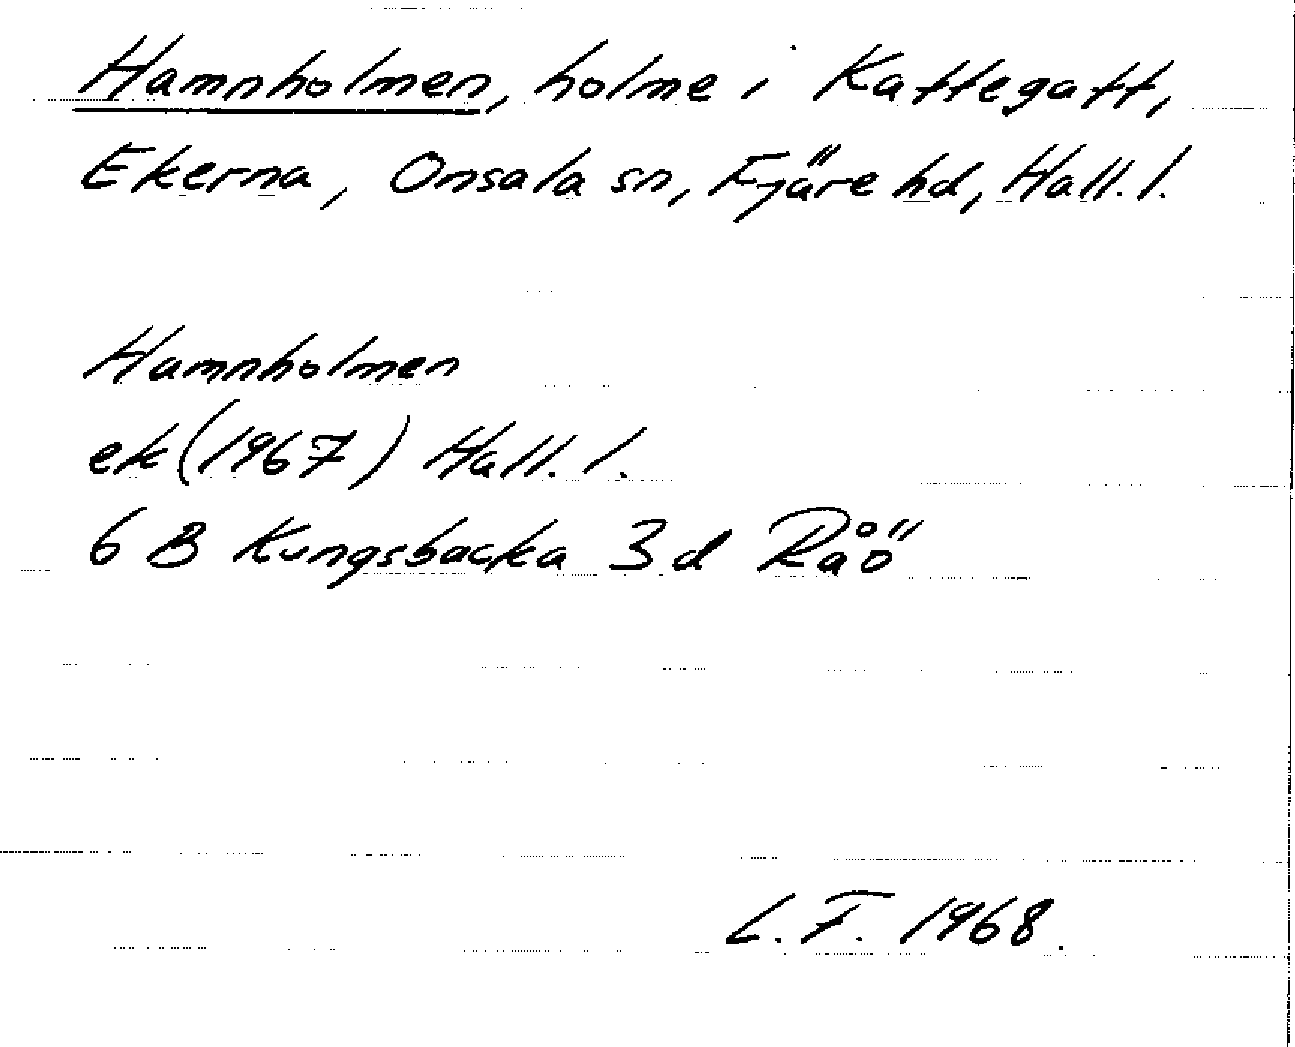 Hamnholmen, holme i Kattegatt,
Ekerna, Onsala sn, Fjäre hd, Hall. l.
Hamnholmen
ek (1967) Hall. l.
6 B Kungsbacka 3 d Råö
L. F. 1968.